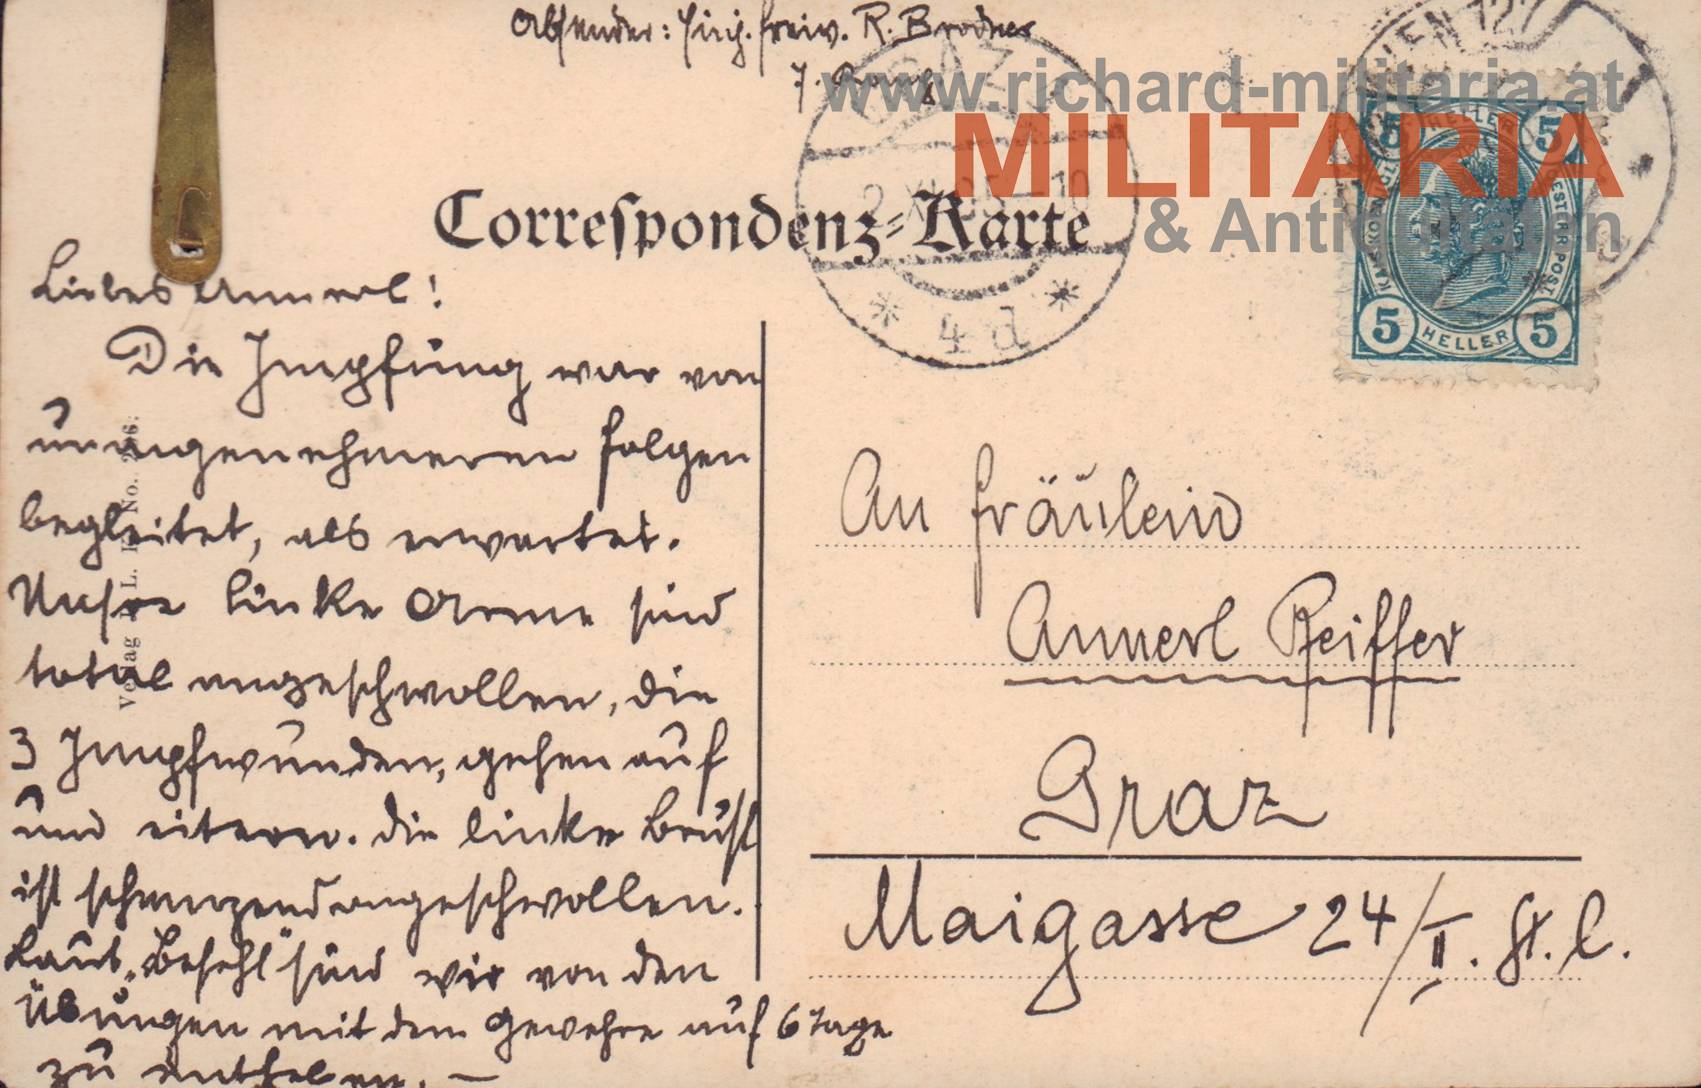 Absender: Einj. freiw. R. Brodner
7. Komp.
www.richard-militaria.at
MILITARIA
& Antiquitäten
WIEN 127
GRAZ
2.XI.05.-10
* 4d *
5 HELLER 5
5 HELLER 5
Correspondenz-Karte
Liebes Annerl!
Die Impfung war von
unangenehmeren Folgen
begleitet, als erwartet.
Unsre linke Arme sind
total angeschwollen, die
3 Impfwunden, gehen auf
und eitern. Die linke Brust
ist schmerzend angeschwollen.
Laut „Befehl" sind wir von den
Übungen mit dem Gewehre auf 6 Tage
zu entheben. —
An Fräulein
Annerl Pfeiffer
Graz
Maigasse 24/II. St. l.
Verlag
No.